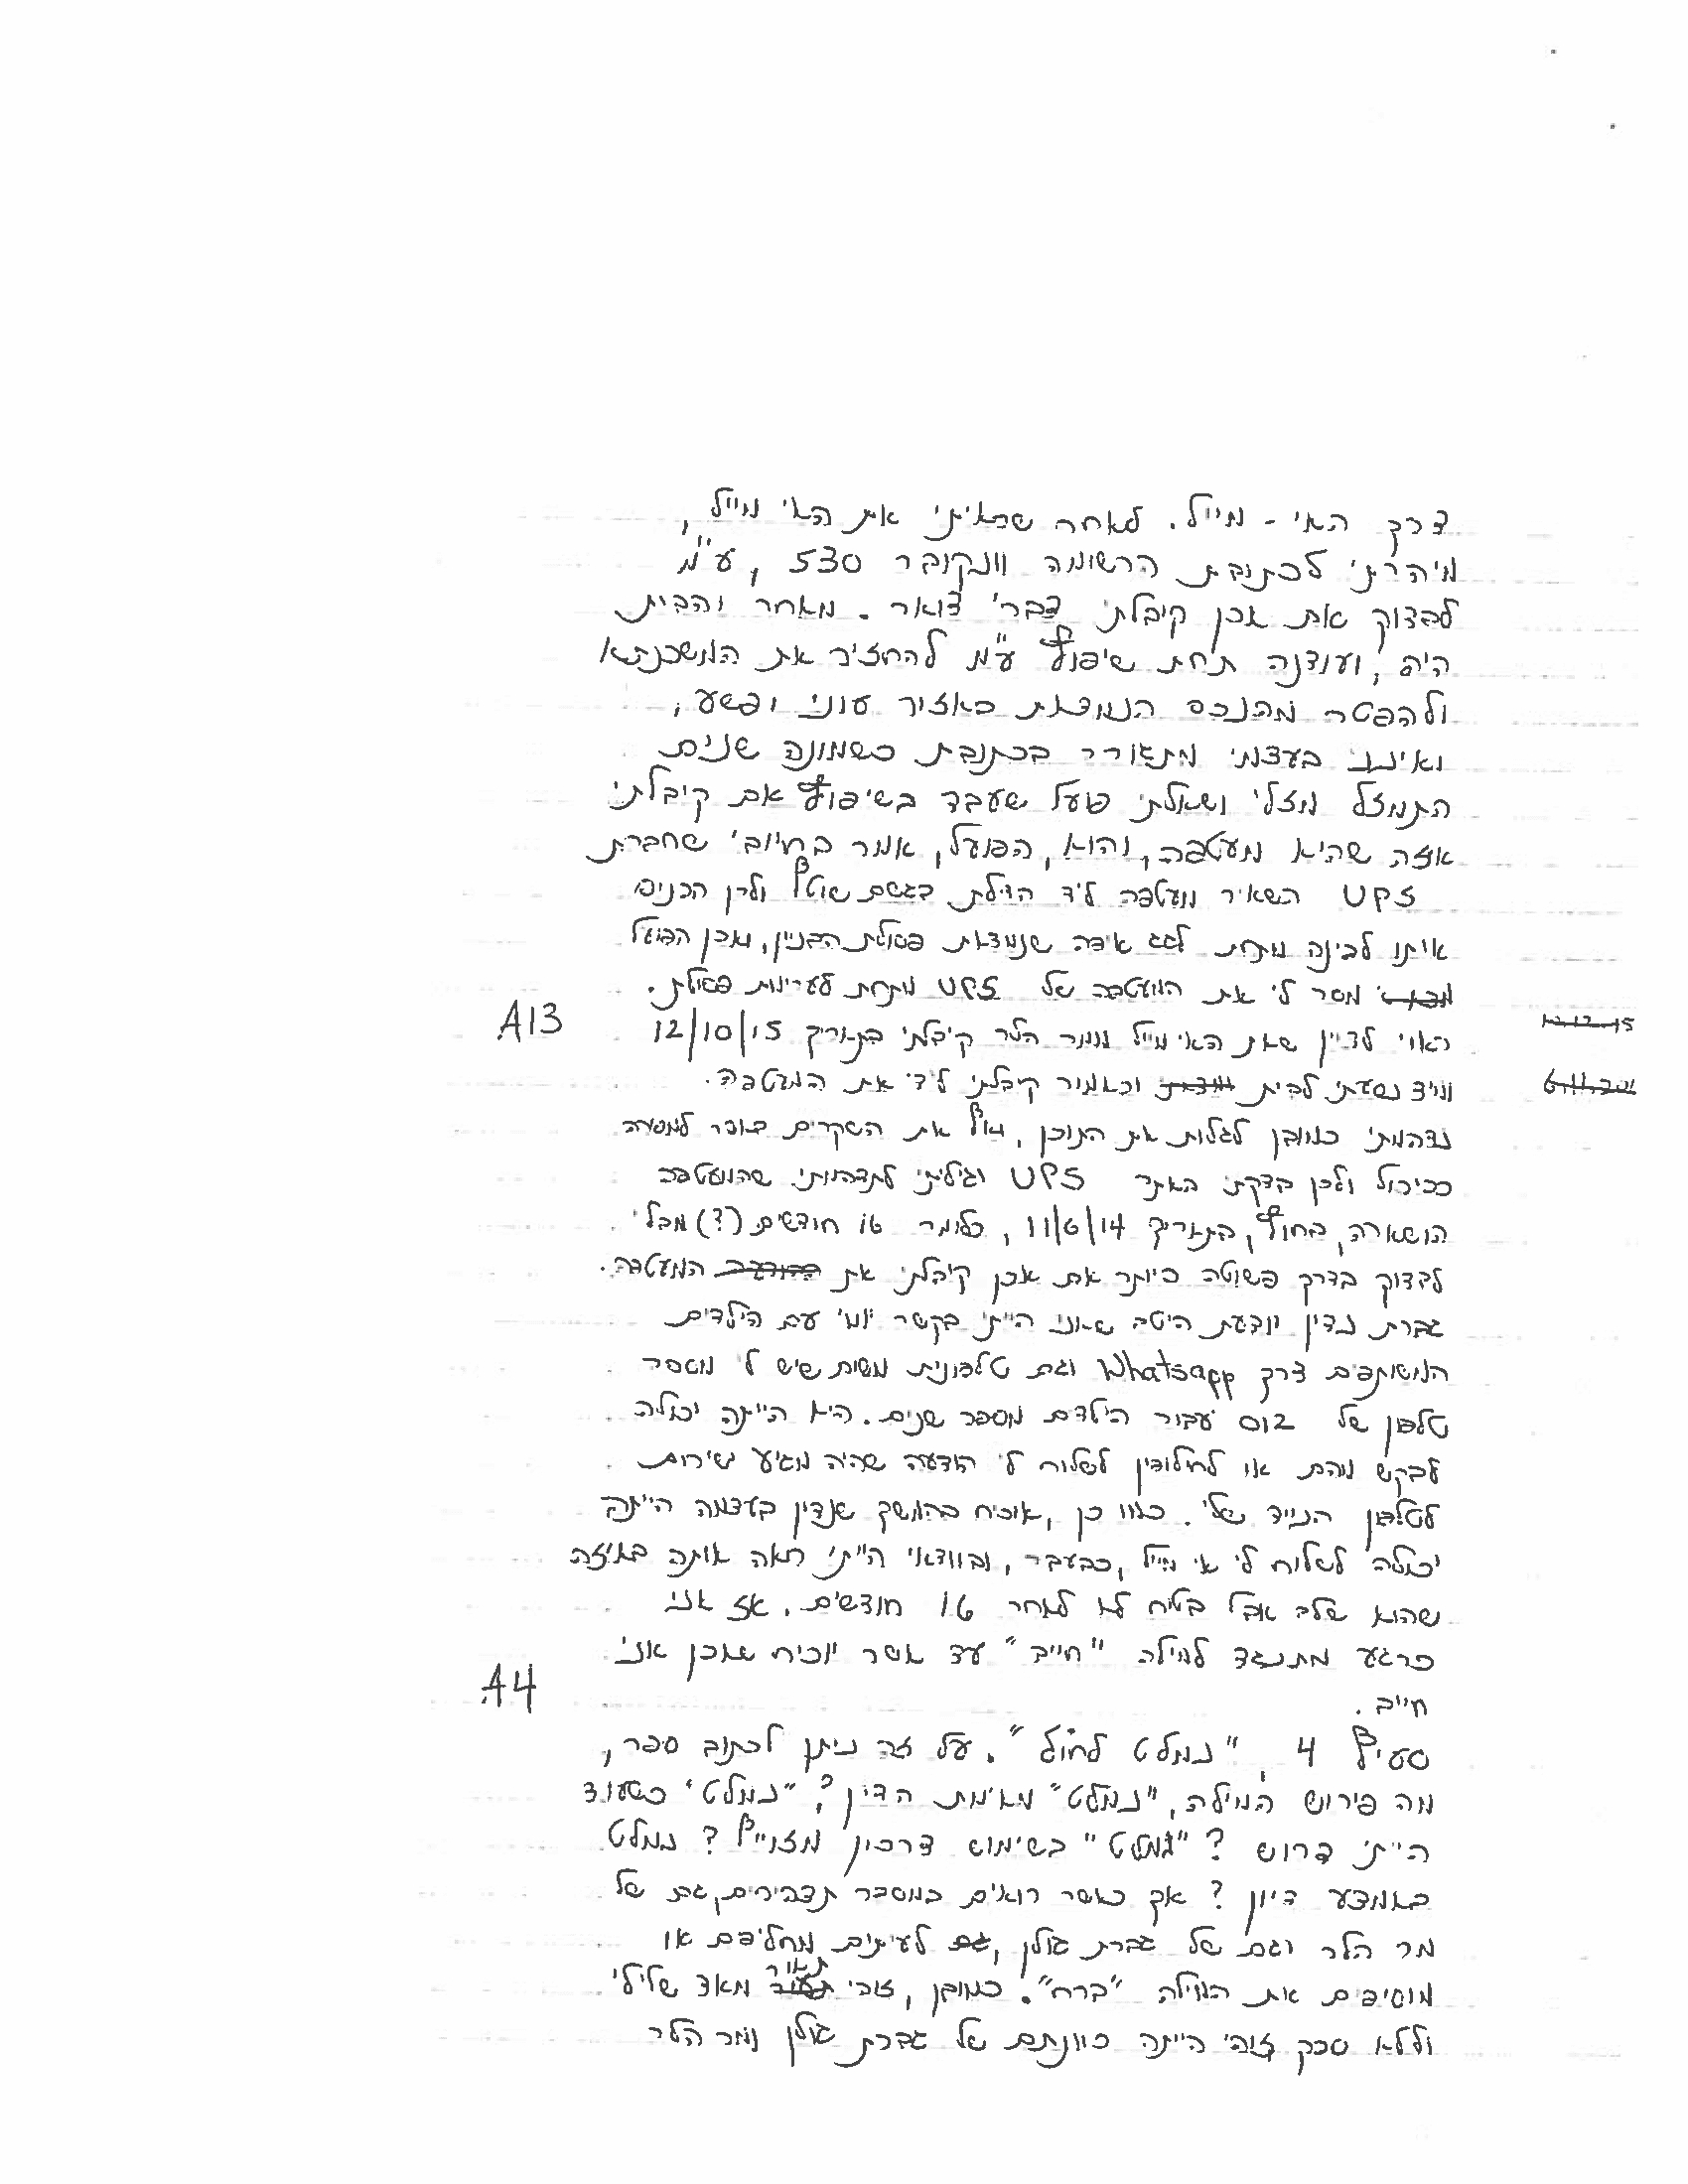 דרך האי - מייל. לאחר שראיתי את האי מייל,
מיהרתי לכתובת הרשומה וונקובר 530, ע"מ
לבדוק את אכן קיבלתי דברי דואר. מאחר והבית
היה, ועודנה תחת שיפוץ ע"מ להחזיר את המשכנתא
ולהפטר מהנכס הנמצאת באזור עוני ופשע,
ואינני בעצמי מתגורר בכתובת כשמונה שנים
התמזל מזלי ושאלתי פועל שעבד בשיפוץ אם קיבלתי
איזה שהיא מעטפה, והוא, הפועל, אמר בחיובי שחברת
UPS השאיר מעטפה ליד הדלת בגשם שוטף ולכן הכניס
אותו לבינה מתחת לגג איפה שנמצאת פסולת הבניין, ואכן הפועל
מסר לי את המעטפה של UPS מתחת לערימות פסולת.
A13 ראוי לציין שאת האי מייל ממר הלר קיבלתי בתאריך 12/10/15 12.12.15
ומיד נסעתי לבית ומצאתי וכאמור קיבלתי לידי את המעטפה. 6.11.201
נדהמתי כמובן לגלות את התוכן, ואף את השקרים באופן למסירה
כביכול ולכן בדקתי האתר UPS וגיליתי לתדהמתי שהמעטפה
הושארה, בחוץ, בתאריך 11/6/14, כלומר 16 חודשים (?) מבלי
לבדוק בדרך פשוטה ביותר את אכן קיבלתי את המעטפה.
גברת נדין יודעת היטב שאני הייתי בקשר יומי עם הילדים
המשותפים דרך Whatsapp וגם טלפונית משום שיש לי מספר
טלפון של 012 עבור הילדים מספר שנים. היא הייתה יכולה
לבקש מהם או לחילופין לשלוח לי הודעה שהיה מגיע ישירות
לטלפון הנייד שלי. כמו כן, אוכיח בהמשך שנדין בעצמה הייתה
יכולה לשלוח לי אי מייל, כבעבר, ובוודאי הייתי רואה אותה באיזה
שהוא שלב אבל בטוח לא לאחר 16 חודשים. אז אני
כרגע מתנגד למילה "חייב" עד אשר יוכיח שאכן אני
A4 חייב.
סעיף 4, "נמלט לחו"ל". על זה ניתן לכתוב ספר,
מה פירוש המילה, "נמלט" מאימת הדין?, "נמלט" כשעוד
הייתי דרוש? "נמלט" בשימוש דרכון מזוייף? נמלט
באמצע דיון? אך כאשר רואים במספר תצהירים, גם של
מר הלר וגם של גברת גולן, גם לעיתים מחליפים או
מוסיפים את המילה "ברח". כמובן, זוהי תאור מאד שלילי
וללא ספק זוהי הייתה כוונתם של גברת גולן ומר הלר